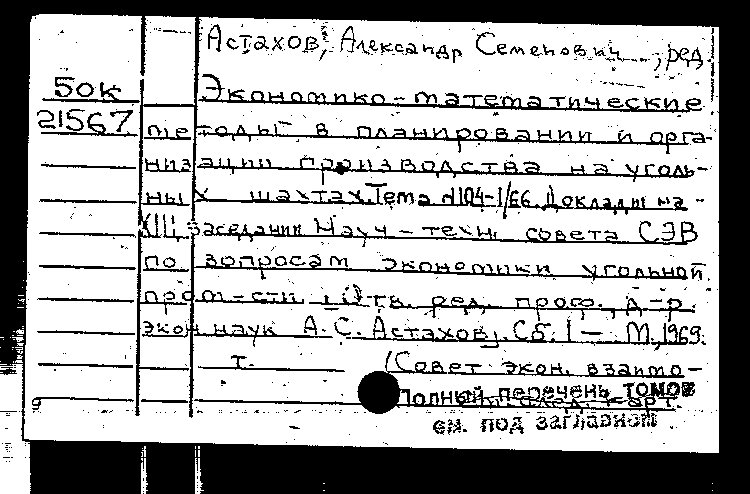 Астахов, Александр Семенович, ред.
50к Экономико-математические
21567 методы в планировании и орга-
низации производства на уголь-
ных шахтах. Тема №104-1/66. Доклады на -
XIII заседании Науч-техн. совета СЭВ
по вопросам экономики угольной
пром-сти. Отв. ред. проф., д-р.
экон. наук А. С. Астахов. Сб. 1 — М., 1969.
т. (Совет экон. взаимо-
Полный перечень томов
см. под заглавном
9